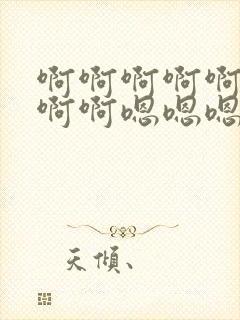 啊啊啊啊啊
啊啊嗯嗯嗯
天傾、